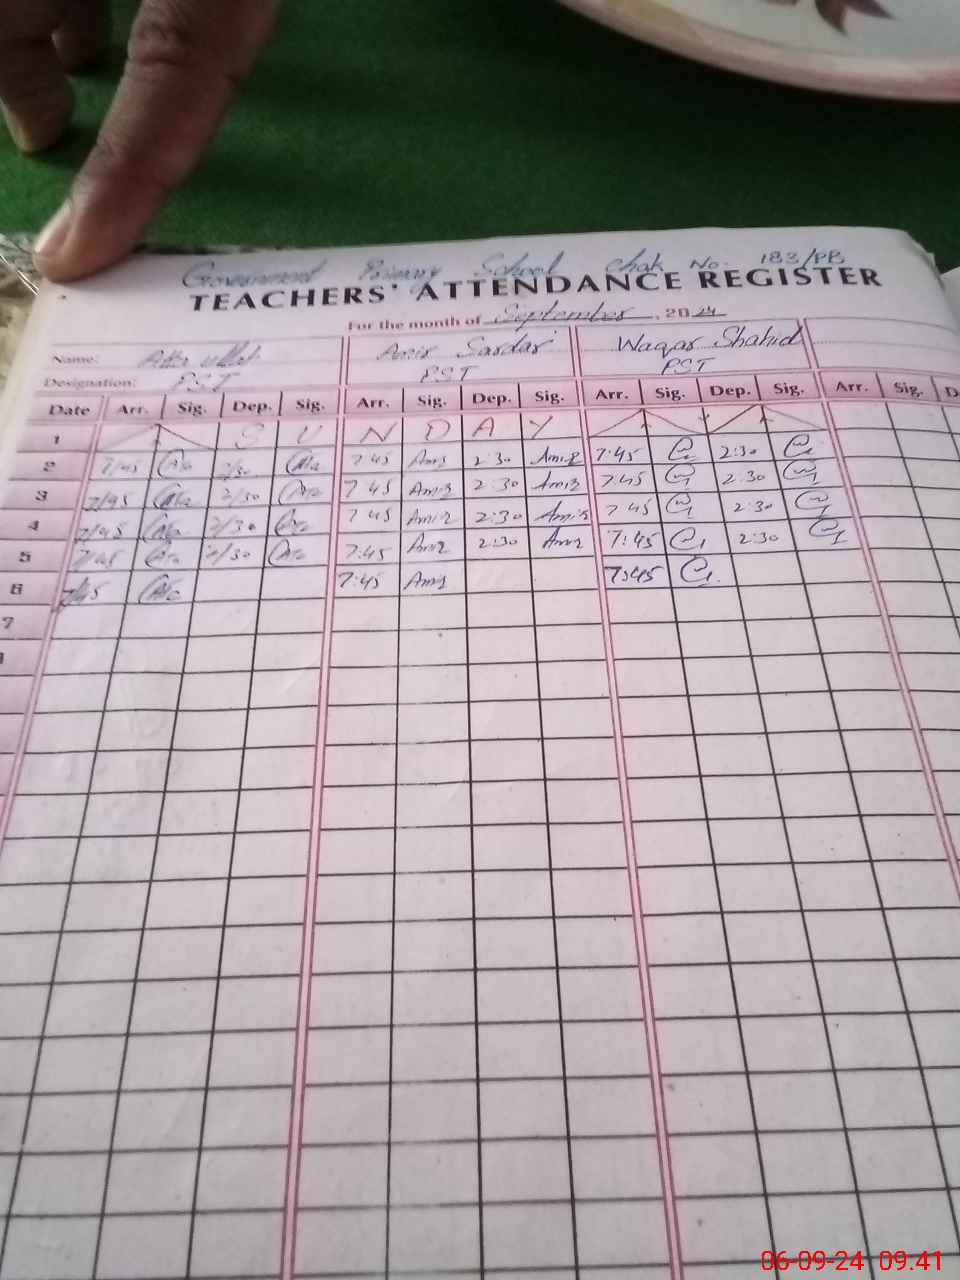 Government Primary School Chak No: 183/PB
TEACHERS' ATTENDANCE REGISTER
For the month of September, 2024
Name: Atta ullah Amir Sardar Waqar Shahid
Designation: PST PST PST
Date Arr. Sig. Dep. Sig. Arr. Sig. Dep. Sig. Arr. Sig. Dep. Sig. Arr. Sig. D
1 S U N D A Y
2 7/45 Atta 2/30 Atta 7:45 Amir 2:30 Amir 7:45 2:30
3 7/45 Atta 2/30 Atta 7:45 Amir 2:30 Amir 7:45 2:30
4 7/45 Atta 2/30 Atta 7:45 Amir 2:30 Amir 7:45 2:30
5 7/45 Atta 2/30 Atta 7:45 Amir 2:30 Amir 7:45 2:30
6 7/45 Atta 7:45 Amir 7:45
7
06-09-24 09.41